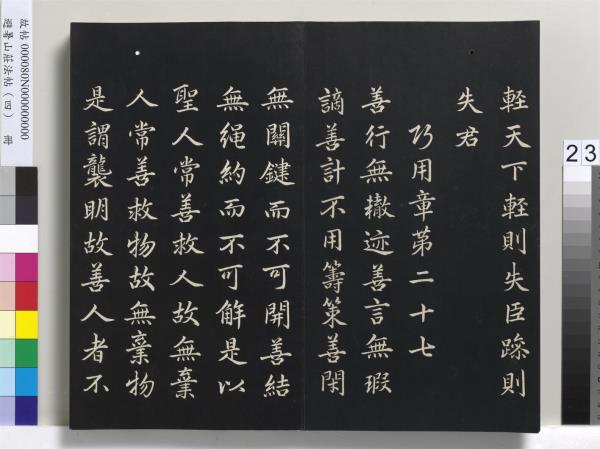 輊天下輊則失臣躁則
失君
巧用章第二十七
善行無轍迹善言無瑕
謫善計不用籌策善閉
無關鍵而不可開善結
無绳約而不可解是以
聖人常善救人故無棄
人常善救物故無棄物
是謂襲明故善人者不
故帖 000080N000000000
避暑山莊法帖(四) 冊
23